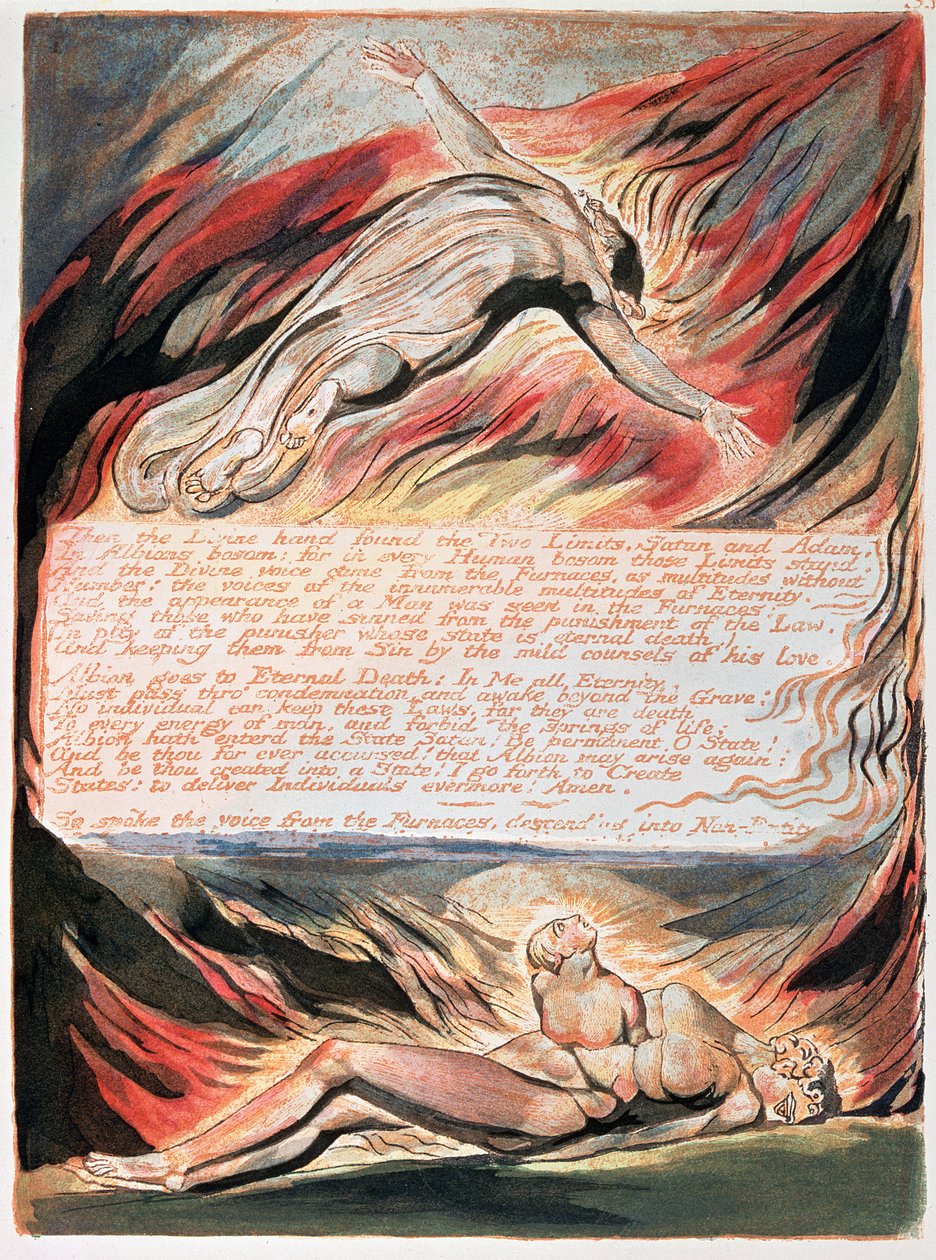 Then the Divine hand found the Two Limits, Satan and Adam,
In Albions bosom: for in every Human bosom those Limits stand.
And the Divine voice came from the Furnaces, as multitudes without
Number: the voices of the innumerable multitudes of Eternity.
And the appearance of a Man was seen in the Furnaces;
Saving those who have sinned from the punishment of the Law,
In pity of the punisher whose state is eternal death,)
And keeping them from Sin by the mild counsels of his love.
Albion goes to Eternal Death: In Me all Eternity,
Must pass thro' condemnation, and awake beyond the Grave:
No individual can keep these Laws, for they are death
To every energy of man, and forbid the springs of life;
Albion hath enterd the State Satan! Be permanent O State!
And be thou for ever accursed! that Albion may arise again:
And be thou created into a State! I go forth to Create
States: to deliver Individuals evermore! Amen.
So spake the voice from the Furnaces, descending into Non-Entity